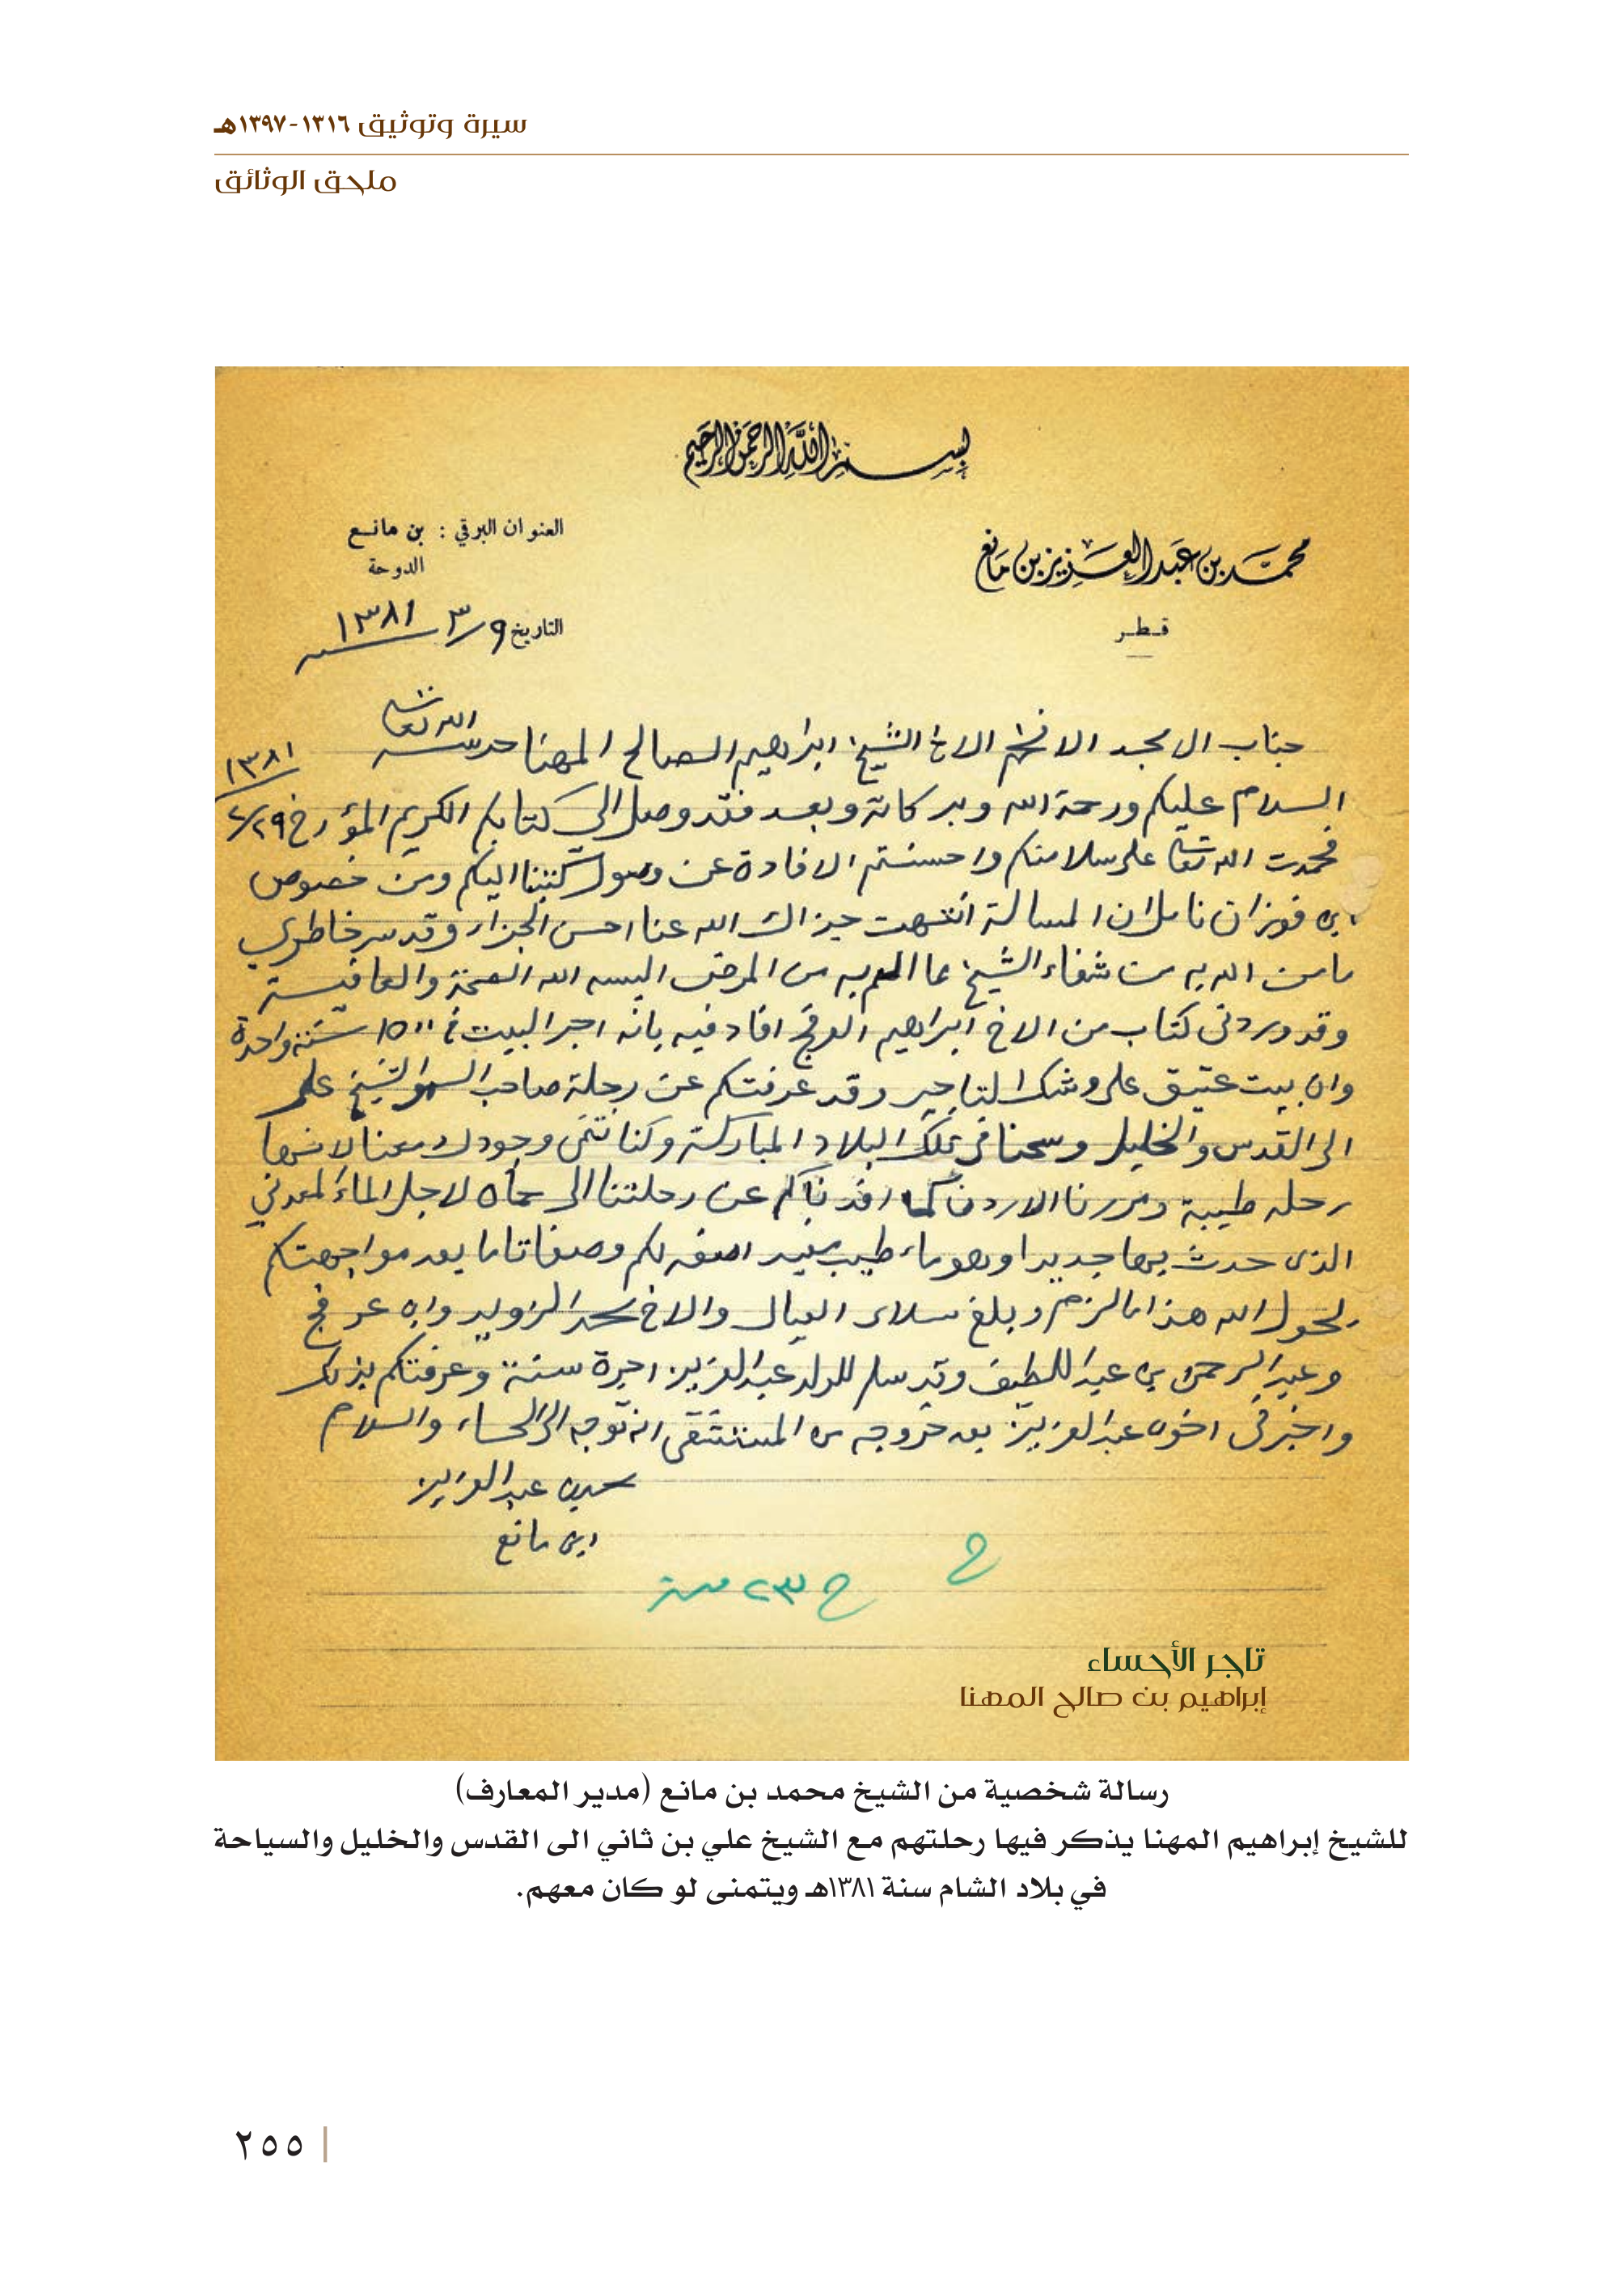 سيرة وتوثيق ١٣١٦-١٣٩٧هـ
ملحق الوثائق
بسم الله الرحمن الرحيم
محمد بن عبد العزيز بن مانع
قطر
العنوان البرقي : بن مانع
الدوحة
التاريخ ٩/٣ ١٣٨١
جناب الامجد الافخم الاخ الشيخ ابراهيم الصالح المهنا حرسه الله تعالى
السلام عليكم ورحمة الله وبركاته وبعد فقد وصل الي كتابكم الكريم المؤرخ ٢/٢٩ ١٣٨١
فحمدت الله تعالى على سلامتكم واحسنتم الافادة عن وصول كتبنا اليكم ومن خصوص
ابن فوزان نامل ان المسالة انتهت جزاك الله عنا احسن الجزاء وقد سر خاطري
ما من الله به من شفاء الشيخ مما الم به من المرض البسه الله الصحة والعافية
وقد وردنى كتاب من الاخ ابراهيم العرفج افاد فيه بانه اجر البيت في ١٥٠٠ سنة واحدة
وان بيت عتيق على وشك التاجير وقد عرفتكم عن رحلة صاحب السمو الشيخ على
الى القدس والخليل وسحنا في تلك البلاد المباركة وكنا نتمنى وجودك معنا لانها
رحله طيبة ومررنا الاردن كما افدناكم عن رحلتنا الى حماه لاجل الماء المعدني
الذى حدث بها جديدا وهو ماء طيب مفيد اصفه لكم وصفا تاما بعد مواجهتكم
بحول الله هذا مالزم وبلغ سلامى العيال والاخ محمد الزويد وابن عرفج
وعبد الرحمن بن عبد اللطيف وقد سلم للولد عبد العزيز اجرة سنة وعرفتكم بذلك
واخبرنى اخوه عبد العزيز بعد خروجه من المستشفى انه توجه الى الحساء والسلام
محمد بن عبد العزيز
ابن مانع
ح
ح ٢٣ منه
تاجر الأحساء
إبراهيم بن صالح المهنا
رسالة شخصية من الشيخ محمد بن مانع (مدير المعارف)
للشيخ إبراهيم المهنا يذكر فيها رحلتهم مع الشيخ علي بن ثاني الى القدس والخليل والسياحة
في بلاد الشام سنة ١٣٨١هـ ويتمنى لو كان معهم.
٢٥٥